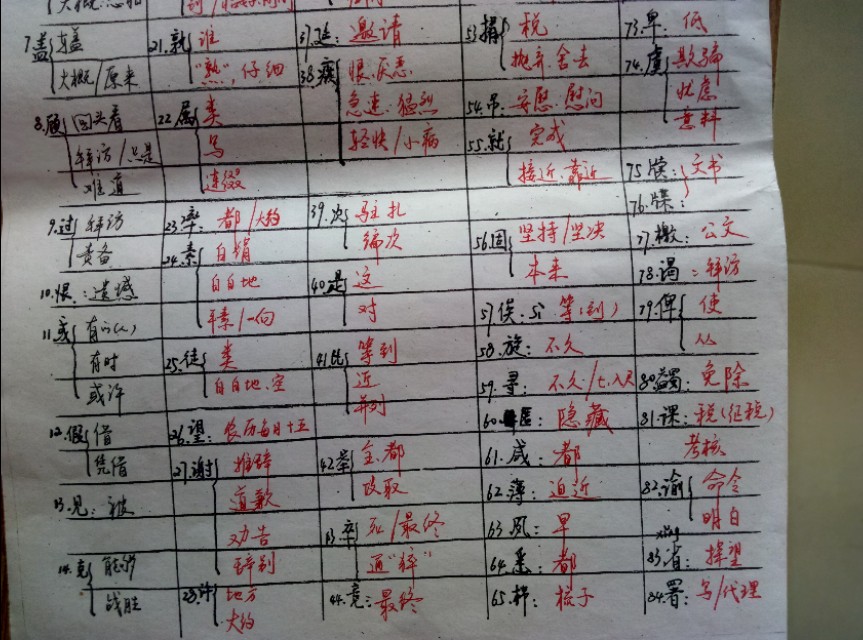 7.盖
大概/原来
8.顾 回头看
拜访/总是
难道
9.过 拜访
责备
10.恨：遗憾
11.或 有的(人)
有时
或许
12.假 借
凭借
13.见：被
14.克 能够
战胜
21.孰 谁
"熟",仔细
22.属 类
写
连缀
23.率：都/大约
24.素 白绢
白白地
平素/一向
25.徒 类
白白地.空
26.望：农历每月十五
27.谢 推辞
道歉
劝告
辞别
28.许 地方
大约
37.延：邀请
38.疾 恨.厌恶
急速.猛烈
轻快/小病
39.次 驻扎
编次
40.是 这
对
41.比 等到
近
并列
42.举 全.都
攻取
43.卒 死/最终
通"猝"
44.竟：最终
53.捐 税
抛弃.舍去
54.吊：安慰.慰问
55.就 完成
接近.靠近
56.固 坚持/坚决
本来
57.俟：sì 等(到)
58.旋：不久
59.寻：不久/七、八尺
60.匿：隐藏
61.咸：都
62.薄：迫近
63.夙：早
64.悉：都
65.栉：梳子
73.卑：低
74.虞 欺骗
忧虑
意料
75.牍：文书
76.牒：
77.檄：公文
78.谒：拜访
79.俾 使
从
80.蠲：免除
81.课：税(征税)
考核
82.谕 命令
明白
xǐng
83.省：探望
84.署：写/代理